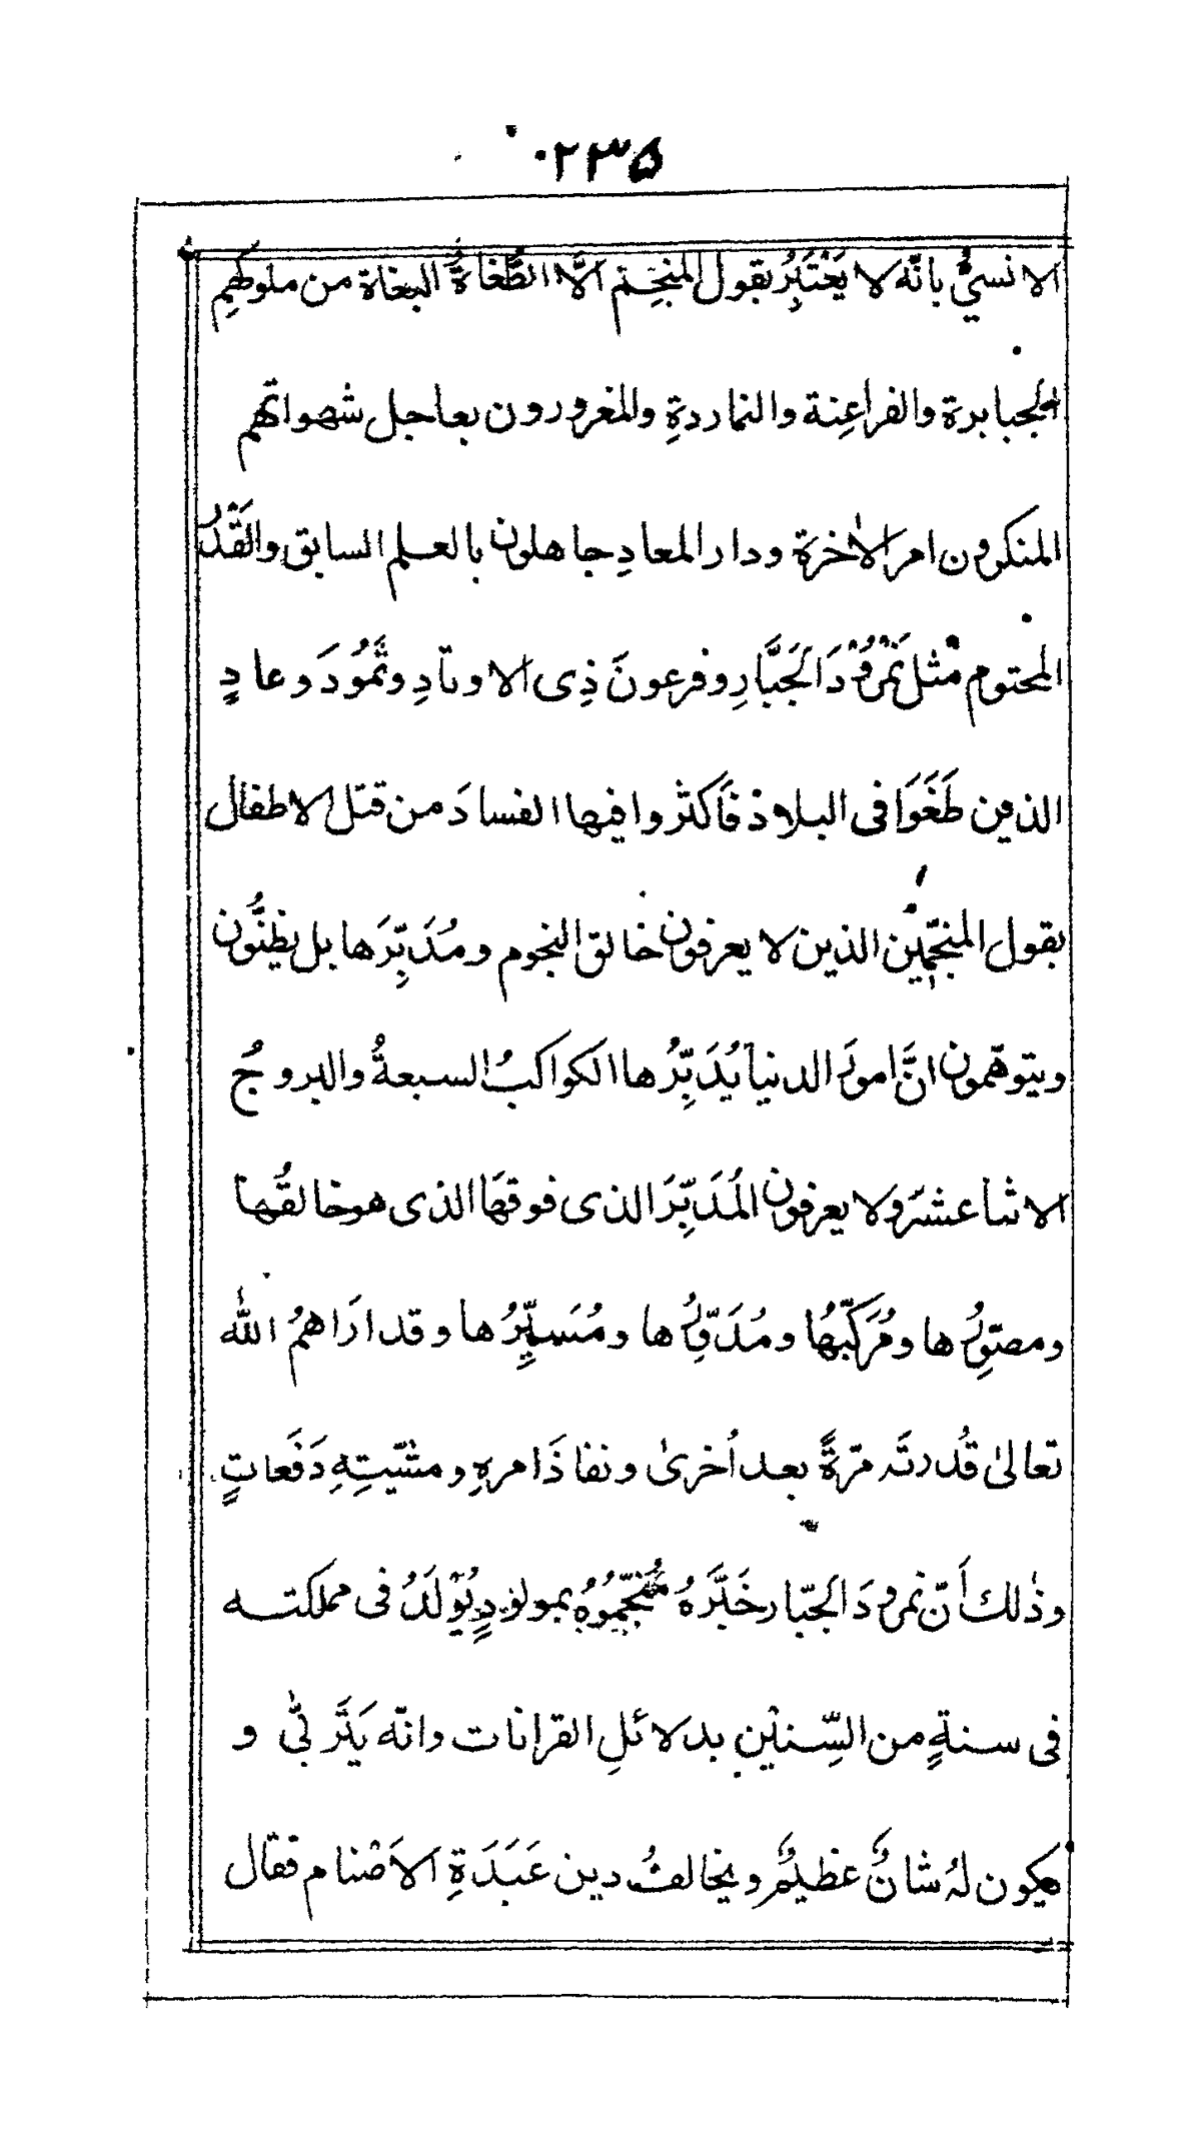 ۲۳۵
الانسيُّ بانّه لا يَعْتَبِرُ بقول المنجّم الَّا الطُّغاةُ البغاة من ملوكهِم
الجبابرة والفراعِنة والنماردةِ والمغرورون بعاجل شهواتهم
المنكرون امر الاٰخرة ودار المعادِ جاهلون بالعلم السابق والقَدْرُ
المحتوم مثل نَمْرُوْدَ الَجَبَّارِ وفرعونَ ذِى الاوتادِ وثَمُودَ وعادٍ
الذين طَغَوَا فى البلاد فَاَكثروا فيها الفسادَ من قتل الاطفال
بقول المنجّمين الذين لا يعرفون خالق النجوم ومُدَبِّرَها بل يظنُّون
ويتوهّمون انَّ امورَ الدنيا يُدَبِّرُها الكواكبُ السبعةُ والبروجُ
الاثنا عشَر ولا يعرفون المُدَبِّرَ الذى فوقهَا الذى هو خالقُها
ومصوِّرُها ومُرَكِّبُها ومُدَوِّرُها ومُسَيِّرُها وقد اَرَاهمُ اللّٰه
تعالىٰ قُدرتَه مرّةً بعد اُخرىٰ ونفاذَ امرهِ ومشيّتِهِ دَفَعاتٍ
وذٰلك اَنّ نمرودَ الَجبّار خَبَّرَهُ مُنَجِّمُوْهُ بمولودٍ يُوْلَدُ فى مملكته
فى سنةٍ من السِّنيْنِ بدلائلِ القرانات وانّه يَتَربّٰى و
يكون لهُ شانٌ عظيمٌ ويخالفُ دين عَبَدَةِ الاَصْنام فقال